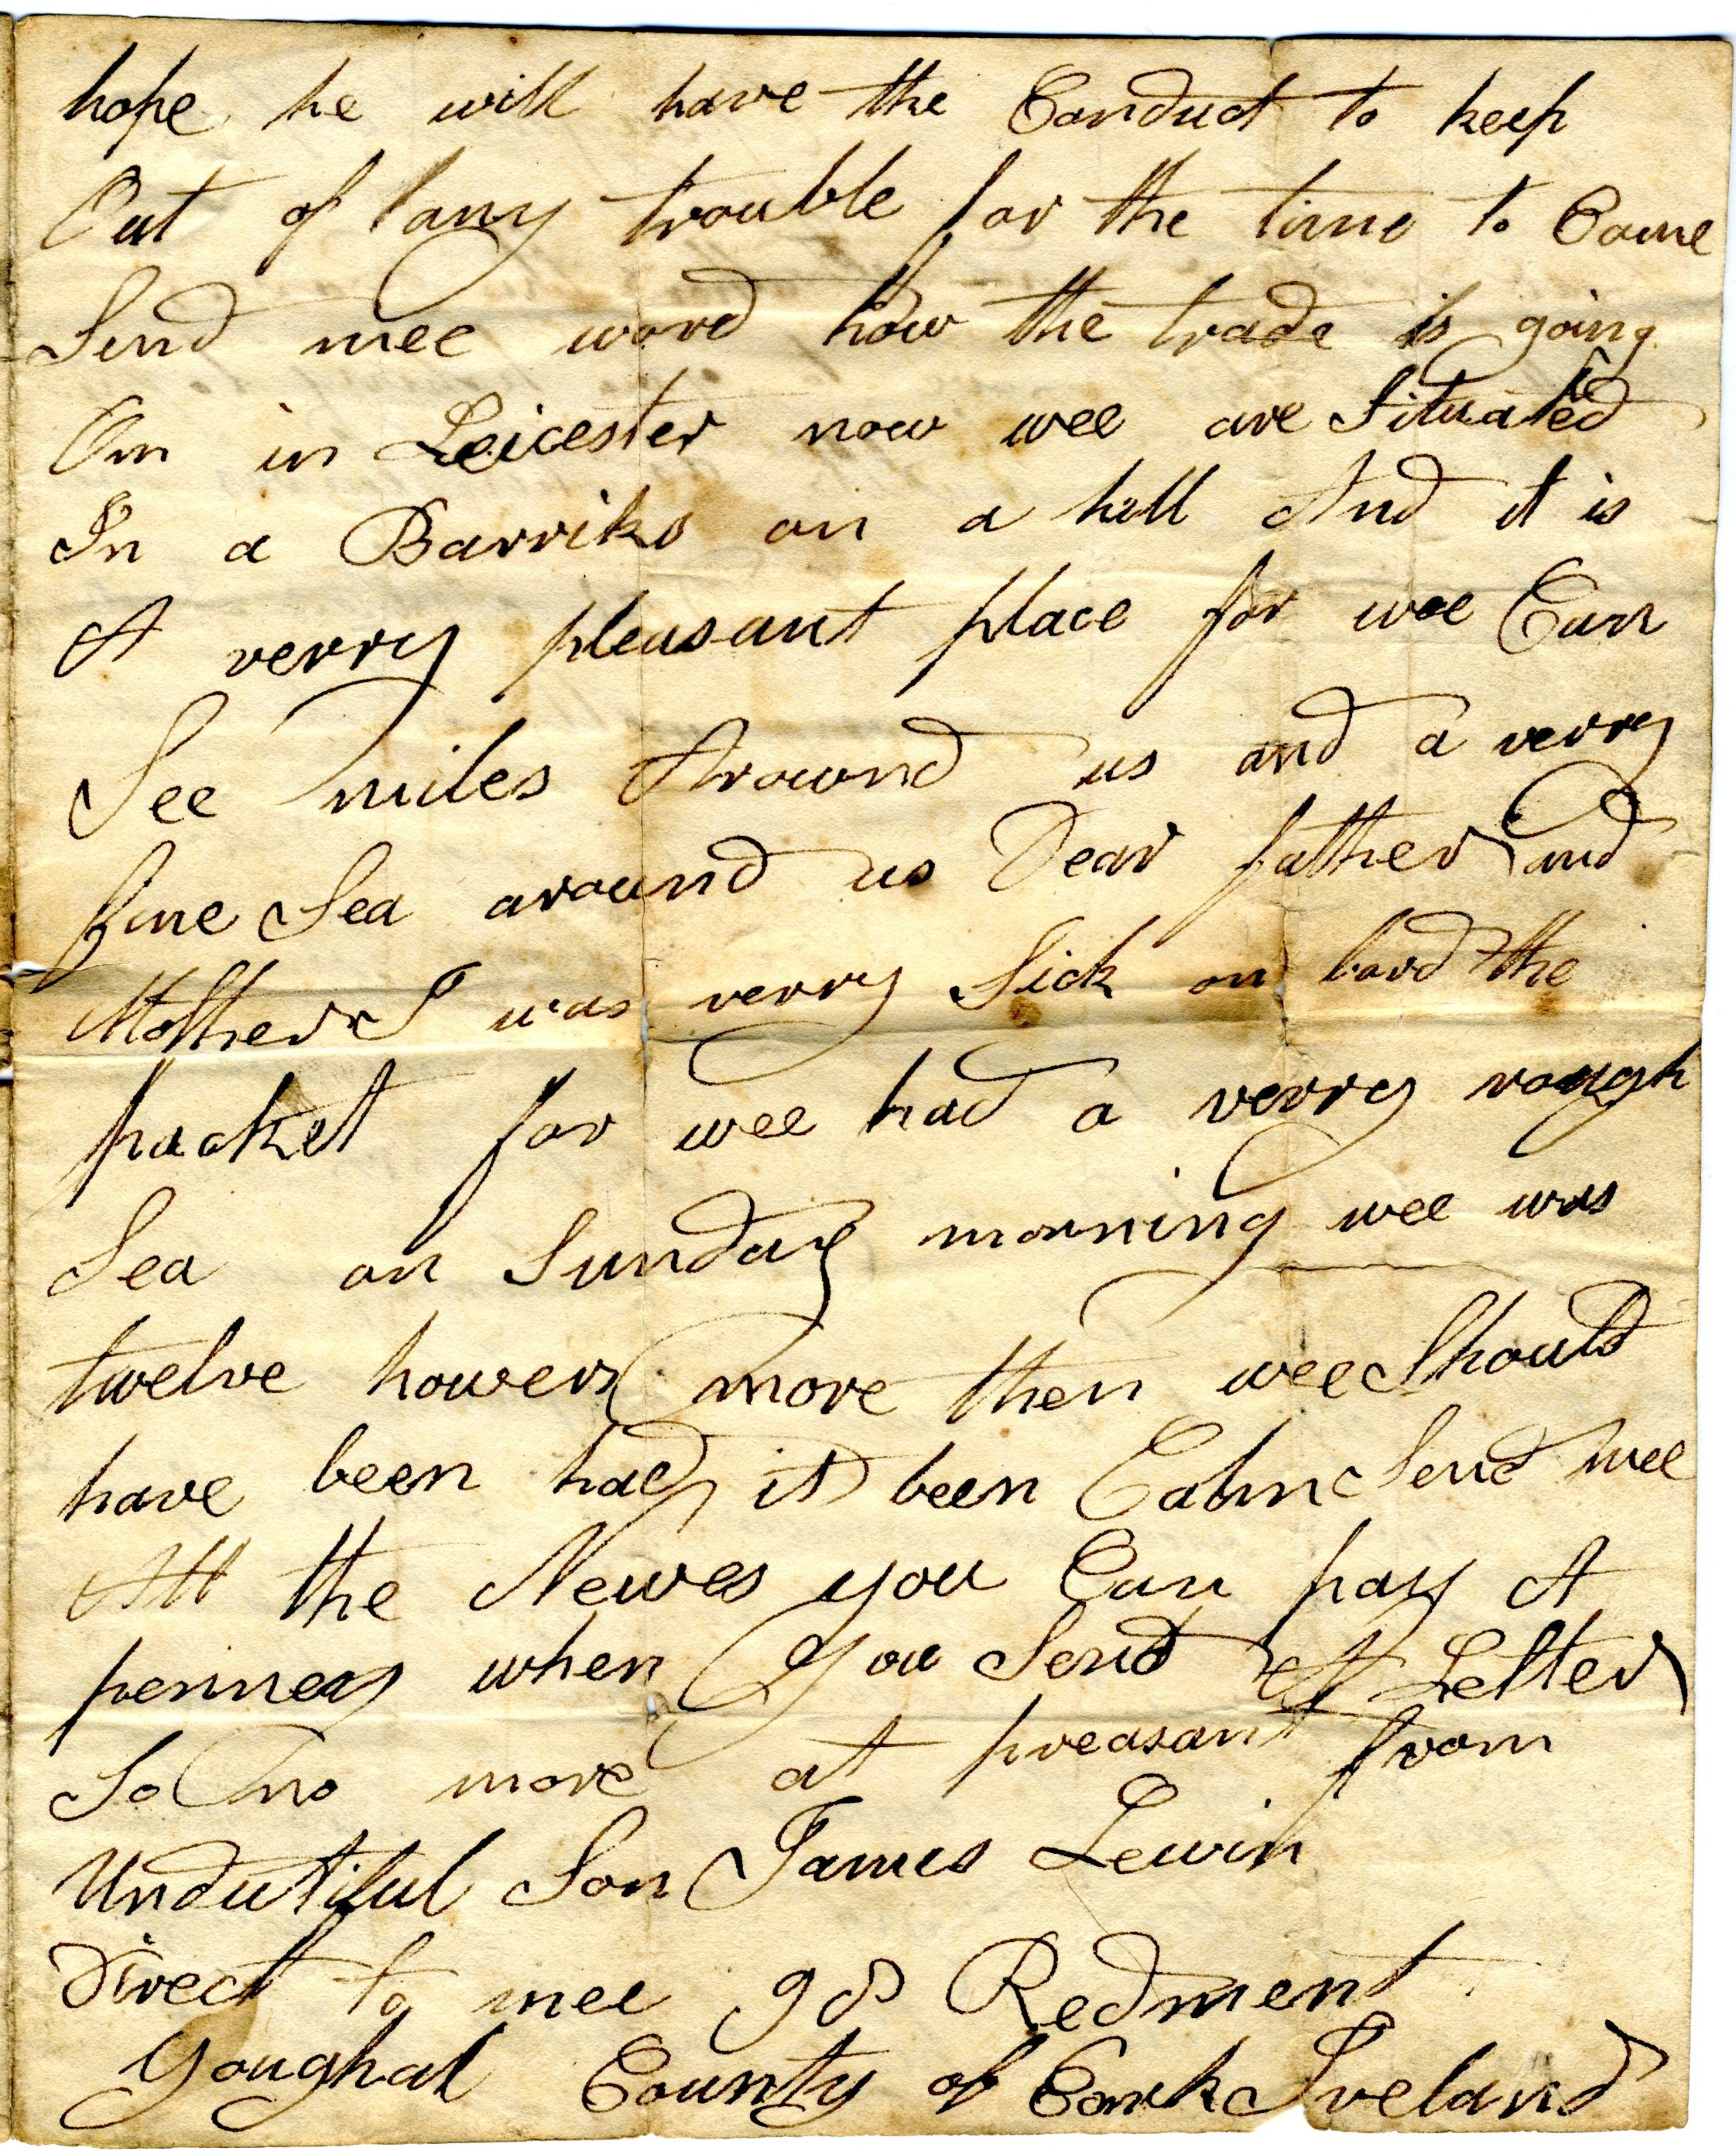 hope he will have the Conduct to keep
Out of any trouble for the time to Come
Send mee word how the trade is going
On in Leicester now wee are Situated
In a Barriks on a hill And it is
A verry pleasant place for wee Can
See miles Arownd us and a verry
fine Sea around us Dear father and
Mother I was verry Sick on bord the
packet for wee had a verry rough
Sea on Sunday morning wee was
twelve howers more then wee Should
have been had it been Calm Send mee
All the Newes you Can pay A
penney when You Send A Letter
So no more at preasant from
Undutiful Son James Lewin
Direct to mee Redment
Youghal County of Cork Ireland